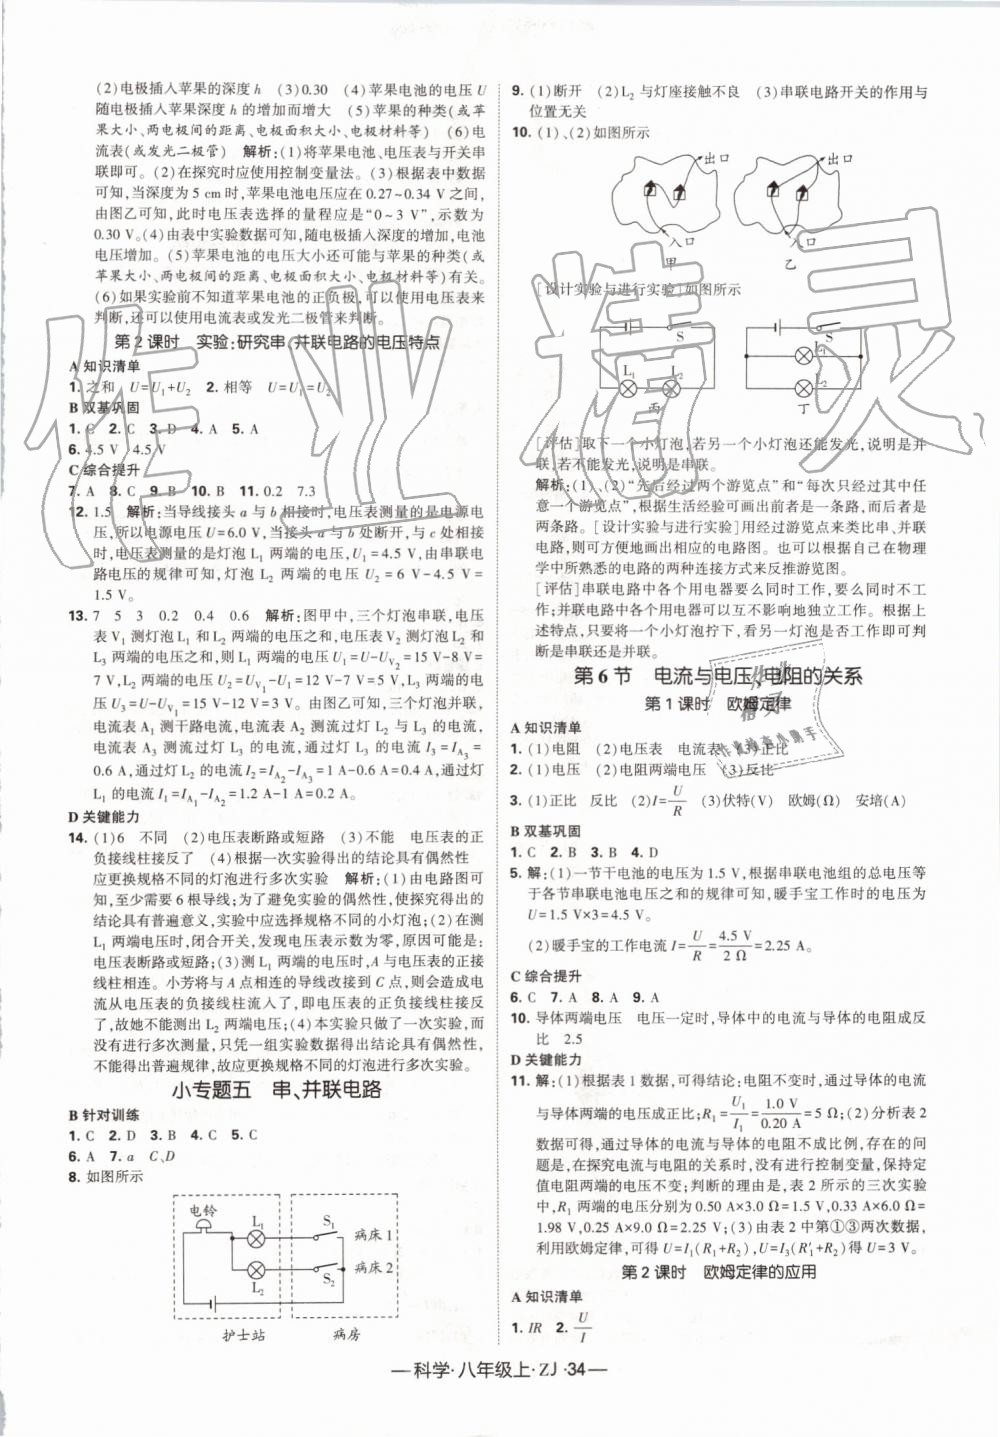 (2)电极插入苹果的深度 h (3)0.30 (4)苹果电池的电压 U
随电极插入苹果深度 h 的增加而增大 (5)苹果的种类(或苹
果大小、两电极间的距离、电极面积大小、电极材料等) (6)电
流表(或发光二极管) 解析:(1)将苹果电池、电压表与开关串
联即可。(2)在探究时应使用控制变量法。(3)根据表中数据
可知,当深度为 5 cm 时,苹果电池电压应在 0.27~0.34 V 之间,
由图乙可知,此时电压表选择的量程应是“0~3 V”,示数为
0.30 V。(4)由表中实验数据可知,随电极插入深度的增加,电池
电压增加。(5)苹果电池的电压大小还可能与苹果的种类(或
苹果大小、两电极间的距离、电极面积大小、电极材料等)有关。
(6)如果实验前不知道苹果电池的正负极,可以使用电压表来
判断,还可以使用电流表或发光二极管来判断。
第 2 课时 实验:研究串、并联电路的电压特点
A 知识清单
1. 之和 U=U₁+U₂ 2. 相等 U=U₁=U₂
B 双基巩固
1. C 2. C 3. D 4. A 5. A
6. 4.5 V 4.5 V
C 综合提升
7. A 8. C 9. B 10. B 11. 0.2 7.3
12. 1.5 解析:当导线接头 a 与 b 相接时,电压表测量的是电源电
压,所以电源电压 U=6.0 V,当接头 a 与 b 处断开,与 c 处相接
时,电压表测量的是灯泡 L₁ 两端的电压,U₁=4.5 V,由串联电
路电压的规律可知,灯泡 L₂ 两端的电压 U₂=6 V-4.5 V=
1.5 V。
13. 7 5 3 0.2 0.4 0.6 解析:图甲中,三个灯泡串联,电压
表 V₁ 测灯泡 L₁ 和 L₂ 两端的电压之和,电压表 V₂ 测灯泡 L₂ 和
L₃ 两端的电压之和,则 L₁ 两端的电压 U₁=U-U_V₂=15 V-8 V=
7 V,L₂ 两端的电压 U₂=U_V₁-U₁=12 V-7 V=5 V,L₃ 两端的电压
U₃=U-U_V₁=15 V-12 V=3 V。由图乙可知,三个灯泡并联,
电流表 A₁ 测干路电流,电流表 A₂ 测流过灯 L₂ 与 L₃ 的电流,
电流表 A₃ 测流过灯 L₃ 的电流,通过灯 L₃ 的电流 I₃=I_A₃=
0.6 A,通过灯 L₂ 的电流 I₂=I_A₂-I_A₃=1 A-0.6 A=0.4 A,通过灯
L₁ 的电流 I₁=I_A₁-I_A₂=1.2 A-1 A=0.2 A。
D 关键能力
14. (1)6 不同 (2)电压表断路或短路 (3)不能 电压表的正
负接线柱接反了 (4)根据一次实验得出的结论具有偶然性
应更换规格不同的灯泡进行多次实验 解析:(1)由电路图可
知,至少需要 6 根导线;为了避免实验的偶然性,使探究得出的
结论具有普遍意义,实验中应选择规格不同的小灯泡;(2)在测
L₁ 两端电压时,闭合开关,发现电压表示数为零,原因可能是:
电压表断路或短路;(3)测 L₁ 两端电压时,A 与电压表的正接
线柱相连。小芳将与 A 点相连的导线改接到 C 点,则会造成电
流从电压表的负接线柱流入了,即电压表的正负接线柱接反
了,故她不能测出 L₂ 两端电压;(4)本实验只做了一次实验,而
没有进行多次测量,只凭一组实验数据得出结论具有偶然性,
不能得出普遍规律,故应更换规格不同的灯泡进行多次实验。
小专题五 串、并联电路
B 针对训练
1. C 2. D 3. B 4. C 5. C
6. A 7. a C、D
8. 如图所示
电铃 L₁ S₁ 病床 1
病床 2
L₂ S₂
护士站 病房
9. (1)断开 (2)L₂ 与灯座接触不良 (3)串联电路开关的作用与
位置无关
10. (1)、(2)如图所示
出口 出口
入口 入口
甲 乙
[设计实验与进行实验]如图所示
S S
L₁
L₁ L₂ L₂
丙 丁
[评估]取下一个小灯泡,若另一个小灯泡还能发光,说明是并
联,若不能发光,说明是串联。
解析:(1)、(2)“先后经过两个游览点”和“每次只经过其中任
意一个游览点”,根据生活经验可画出前者是一条路,而后者是
两条路。[设计实验与进行实验]用经过游览点来类比串、并联
电路,则可方便地画出相应的电路图。也可以根据自己在物理
学中所熟悉的电路的两种连接方式来反推游览图。
[评估]串联电路中各个用电器要么同时工作,要么同时不工
作;并联电路中各个用电器可以互不影响地独立工作。根据上
述特点,只要将一个小灯泡拧下,看另一灯泡是否工作即可判
断是串联还是并联。
第 6 节 电流与电压、电阻的关系
第 1 课时 欧姆定律
A 知识清单
1. (1)电阻 (2)电压表 电流表 (3)正比
2. (1)电压 (2)电阻两端电压 (3)反比
3. (1)正比 反比 (2)I=U/R (3)伏特(V) 欧姆(Ω) 安培(A)
B 双基巩固
1. C 2. B 3. B 4. D
5. 解:(1)一节干电池的电压为 1.5 V,根据串联电池组的总电压等
于各节串联电池电压之和的规律可知,暖手宝工作时的电压为
U=1.5 V×3=4.5 V。
(2)暖手宝的工作电流 I=U/R=4.5 V/2 Ω=2.25 A。
C 综合提升
6. C 7. A 8. A 9. A
10. 导体两端电压 电压一定时,导体中的电流与导体的电阻成反
比 2.5
D 关键能力
11. 解:(1)根据表 1 数据,可得结论:电阻不变时,通过导体的电流
与导体两端的电压成正比;R₁=U₁/I₁=1.0 V/0.20 A=5 Ω;(2)分析表 2
数据可得,通过导体的电流与导体的电阻不成比例,存在的问
题是,在探究电流与电阻的关系时,没有进行控制变量,保持定
值电阻两端的电压不变;判断的理由是,表 2 所示的三次实验
中,R₁ 两端的电压分别为 0.50 A×3.0 Ω=1.5 V,0.33 A×6.0 Ω=
1.98 V,0.25 A×9.0 Ω=2.25 V;(3)由表 2 中第①③两次数据,
利用欧姆定律,可得 U=I₁(R₁+R₂),U=I₃(R′₁+R₂),所以 U=3 V。
第 2 课时 欧姆定律的应用
A 知识清单
1. IR 2. U/I
科学·八年级上·ZJ·34
作业精灵